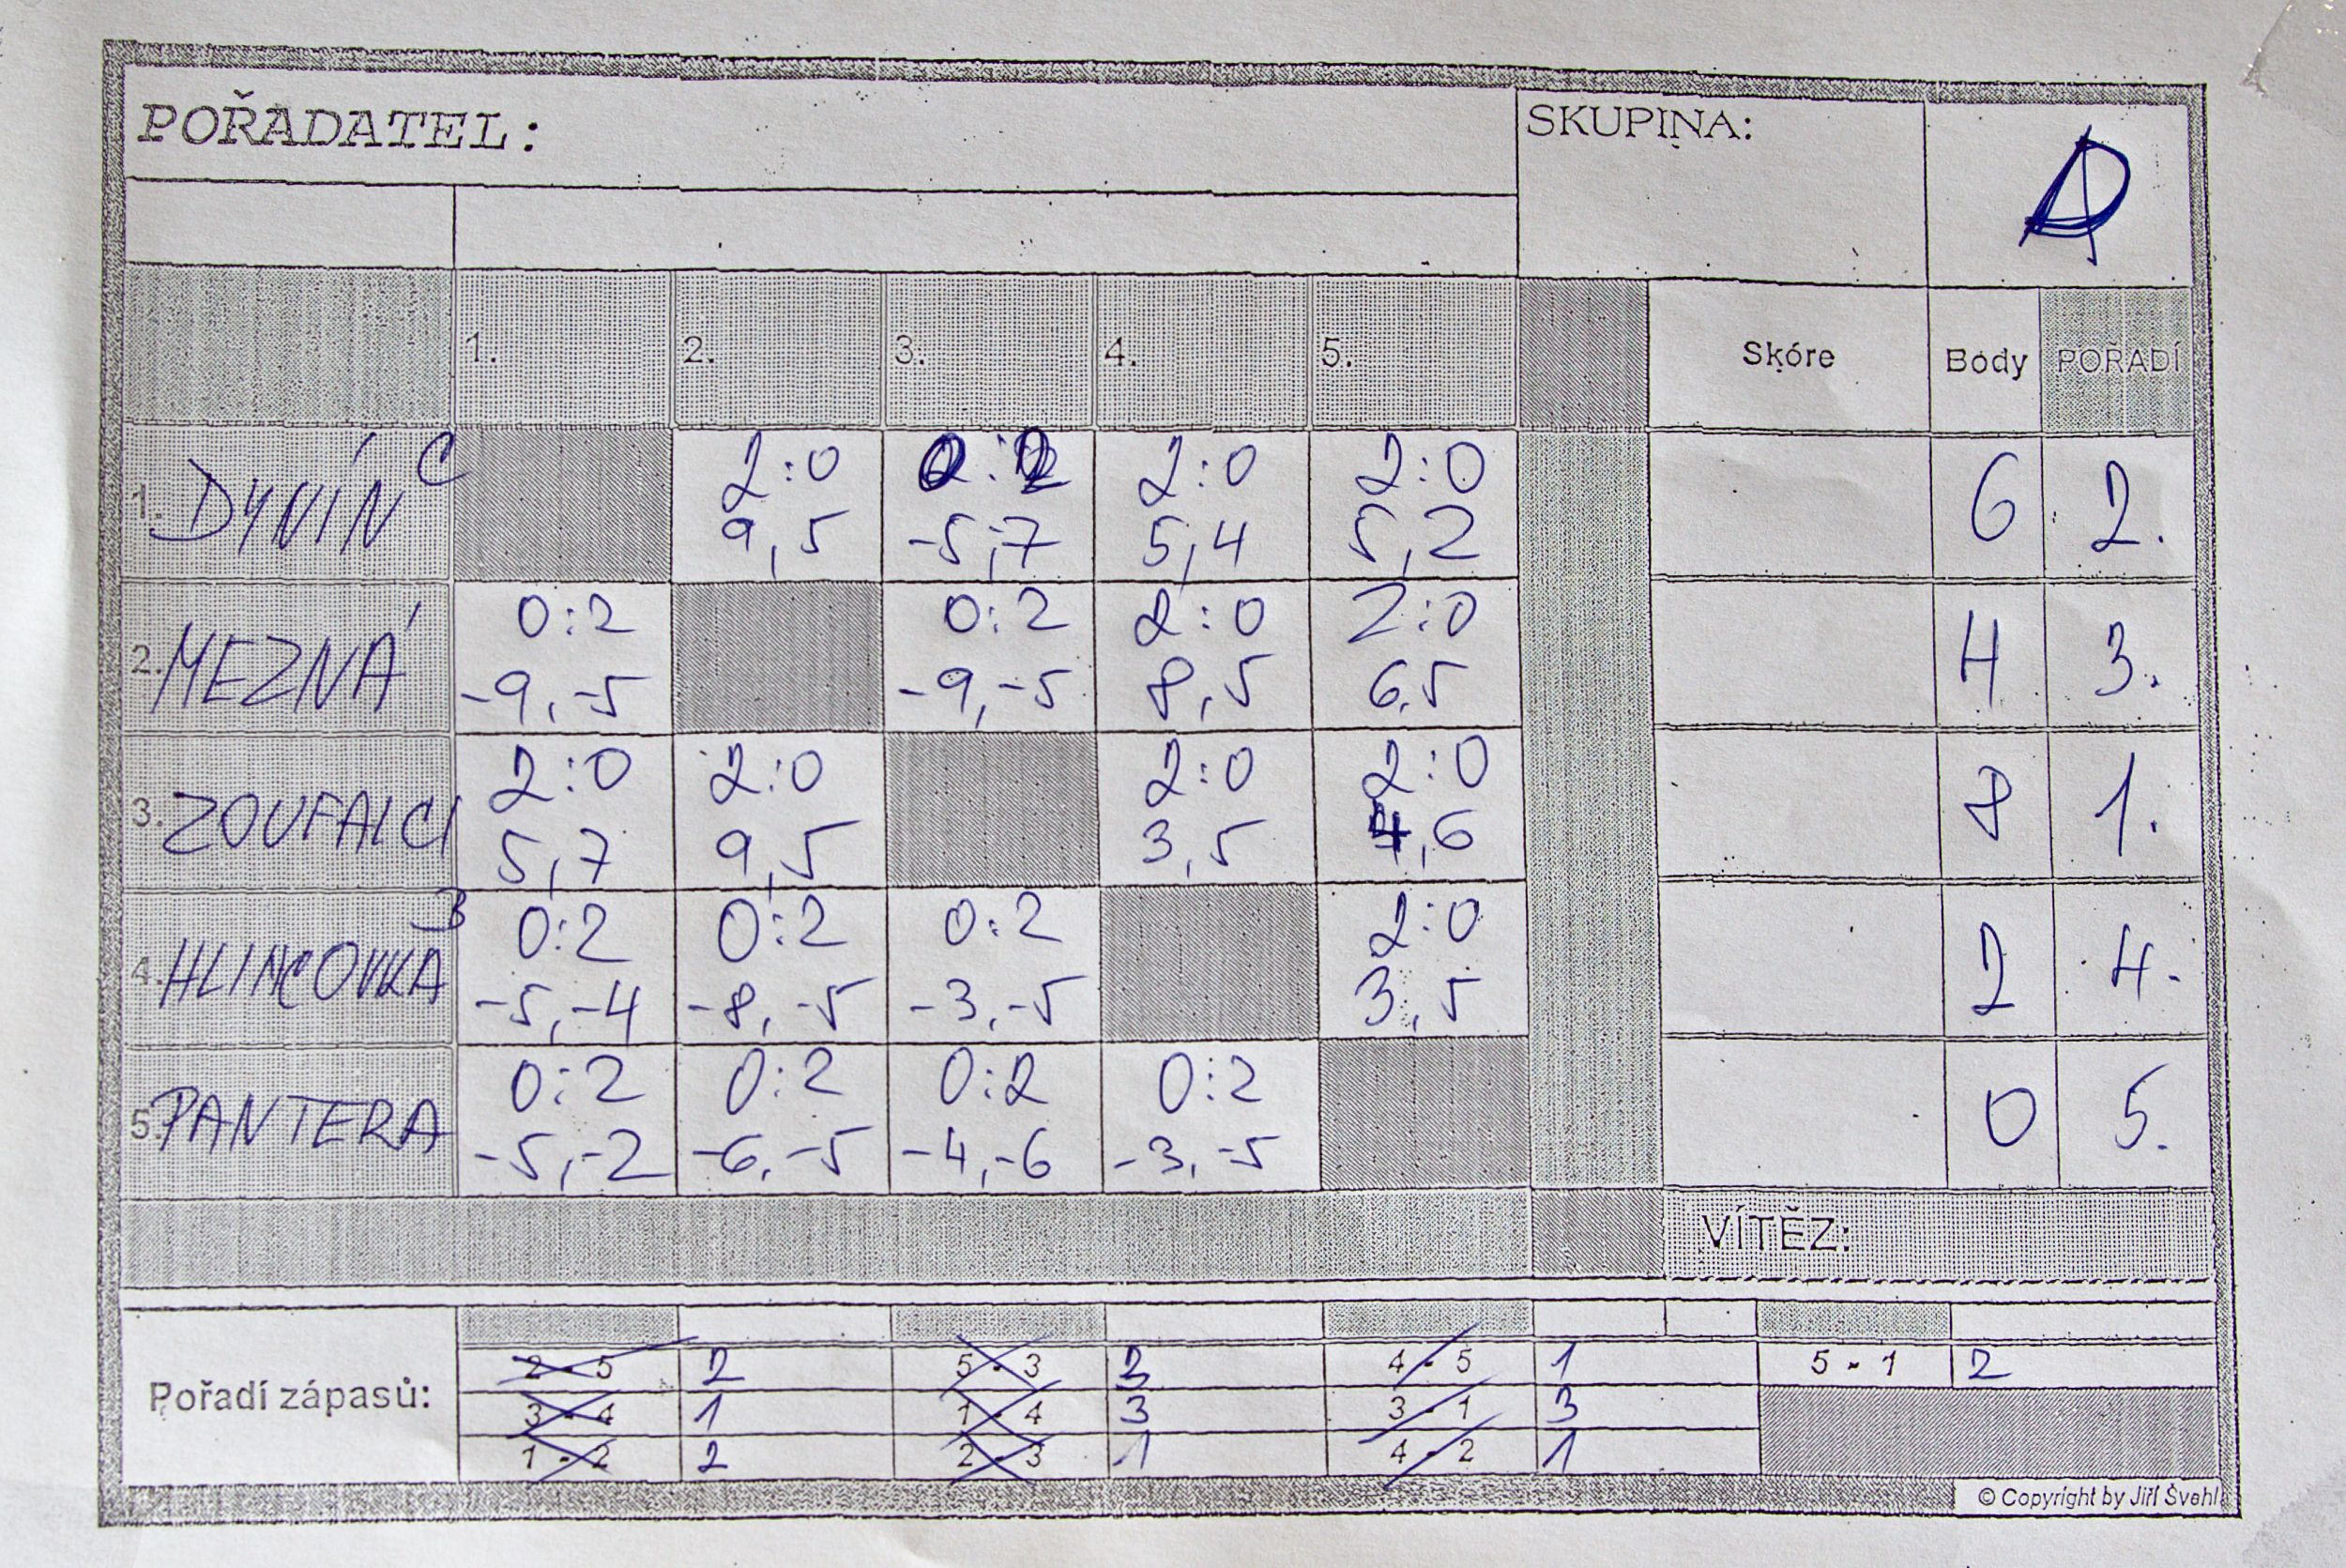 POŘADATEL:
SKUPINA:
1. 2. 3. 4. 5. Skóre Body POŘADÍ
1. DYNÍN C 2:0 0:2 2:0 2:0 6 2.
9,5 -5,-7 5,4 5,2
2. MEZNÁ 0:2 0:2 2:0 2:0 4 3.
-9,-5 -9,-5 8,5 6,5
3. ZOUFALCI 2:0 2:0 2:0 2:0 8 1.
5,7 9,5 3,5 4,6
4. HLINCOVKA B 0:2 0:2 0:2 2:0 2 4.
-5,-4 -8,-5 -3,-5 3,5
5. PANTERA 0:2 0:2 0:2 0:2 0 5.
-5,-2 -6,-5 -4,-6 -3,-5
VÍTĚZ:
Pořadí zápasů:
2 - 5 2 5 - 3 4 - 5 1 5 - 1 2
3 - 4 1 1 - 4 3 3 - 1 3
1 - 2 2 2 - 3 1 4 - 2 1
© Copyright by Jiří Švehl